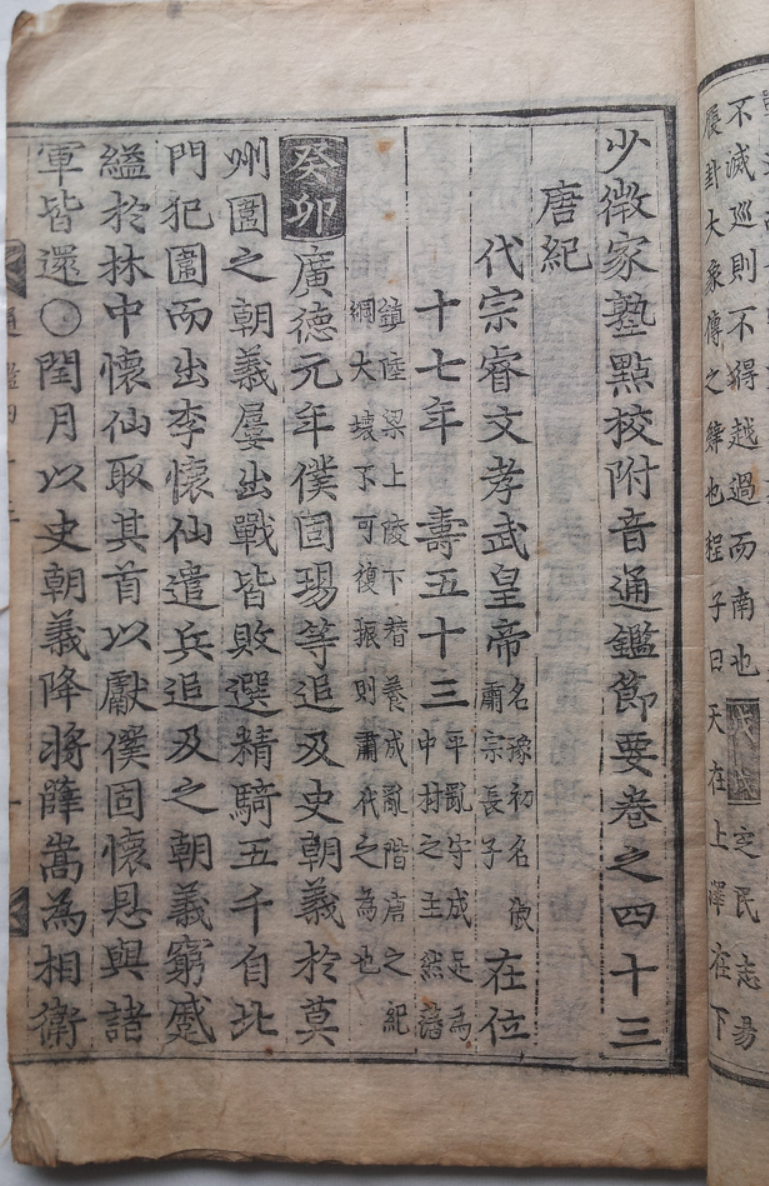 不滅巡則不得越過而南也定民志易
履卦大象傳之辭也程子曰天在上澤在下
少微家塾點校附音通鑑節要卷之四十三
唐紀
代宗睿文孝武皇帝名豫初名俶肅宗長子在位
十七年 壽五十三平亂守成足為中材之主然藩
鎮陸梁上陵下替養成亂階唐之紀
綱大壞不可復振則肅代之為也
癸卯廣德元年僕固瑒等追及史朝義於莫
州圍之朝義屢出戰皆敗選精騎五千自北
門犯圍而出李懷仙遣兵追及之朝義窮蹙
縊於林中懷仙取其首以獻僕固懷恩與諸
軍皆還○閏月以史朝義降將薛嵩為相衛
通鑑四十三 一